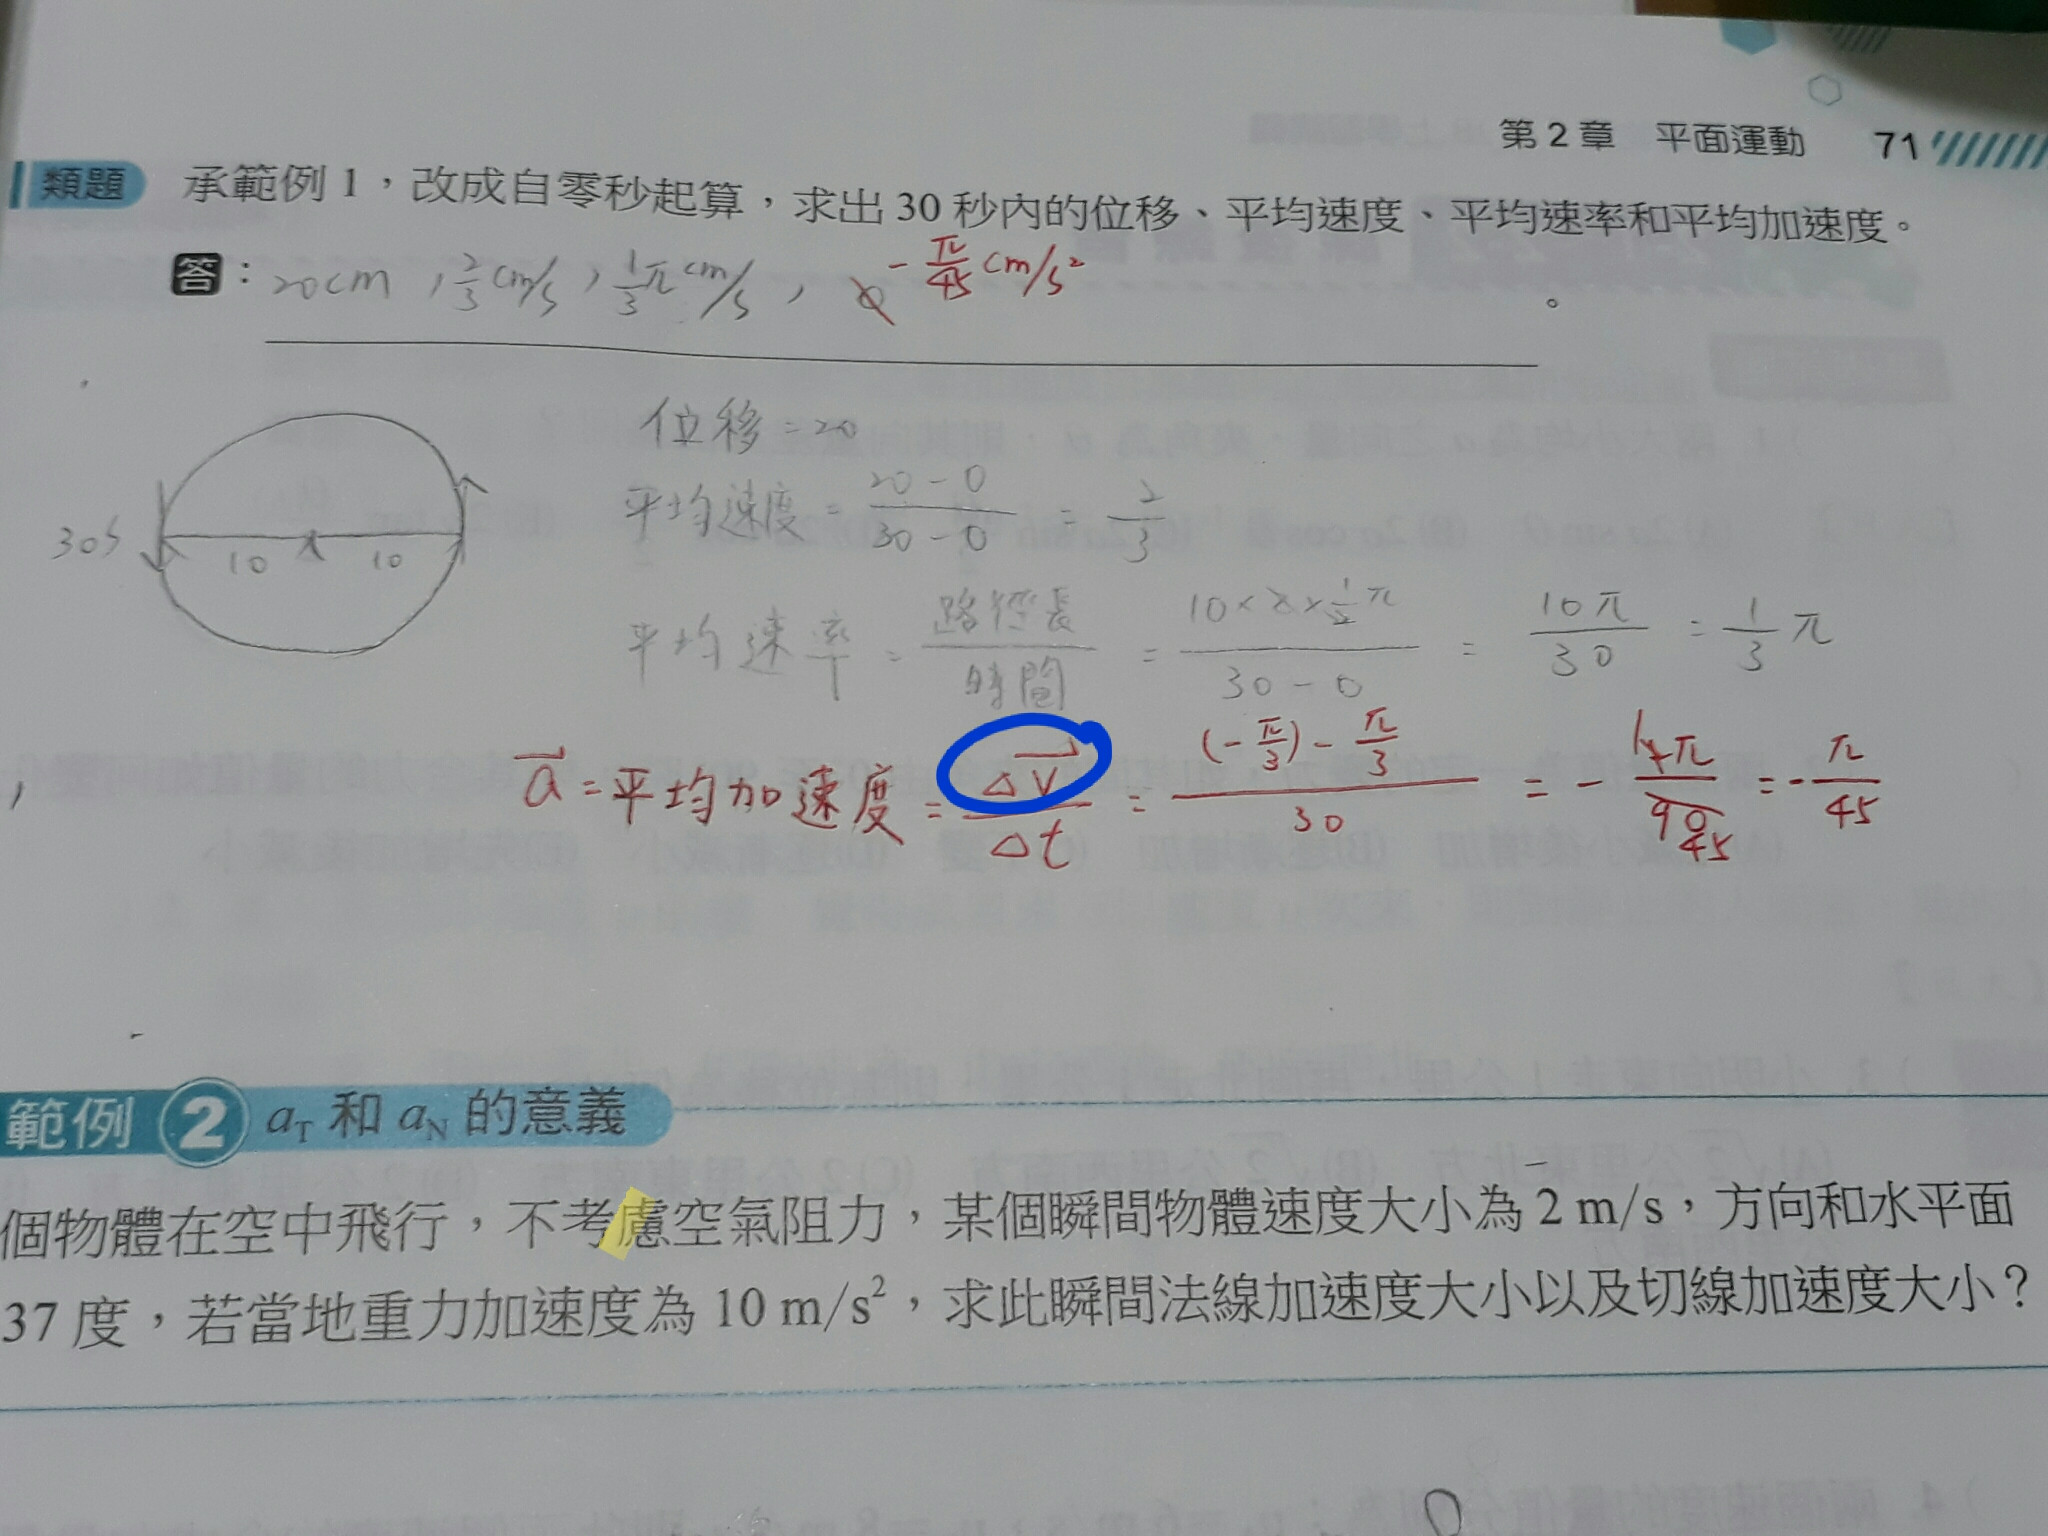 第 2 章 平面運動 71
類題 承範例 1，改成自零秒起算，求出 30 秒內的位移、平均速度、平均速率和平均加速度。
答：20cm , 2/3 cm/s , 1/3 π cm/s , -π/45 cm/s² 。
位移 = 20
平均速度 = (20-0)/(30-0) = 2/3
30s 10 10
平均速率 = 路徑長/時間 = (10×2×1/2π)/(30-0) = 10π/30 = 1/3 π
a = 平均加速度 = Δv/Δt = ((-π/3)-π/3)/30 = - π/45
範例 2 aT 和 aN 的意義
個物體在空中飛行，不考慮空氣阻力，某個瞬間物體速度大小為 2 m/s，方向和水平面
37 度，若當地重力加速度為 10 m/s²，求此瞬間法線加速度大小以及切線加速度大小？